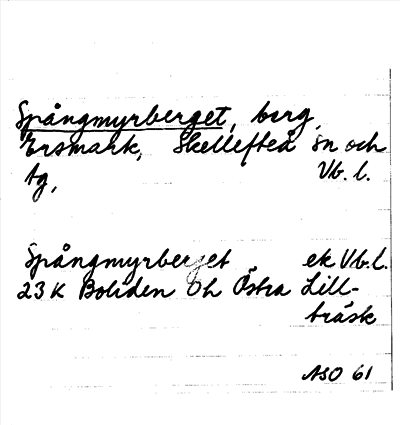 Spångmyrberget, berg,
Ersmark, Skellefteå sn och
tg, Vb. l.
Spångmyrberget ek Vb.l.
23 K Boliden Oh Östra Lill-
träsk
ASO 61